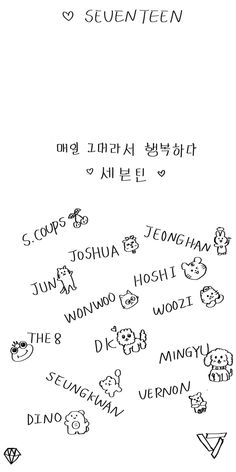 ♡ SEVENTEEN
매일 그대라서 행복하다
♡ 세븐틴 ♡
S.COUPS
JEONGHAN
JOSHUA
JUN
HOSHI
WONWOO
WOOZI
THE 8
DK
MINGYU
SEUNGKWAN
VERNON
DINO